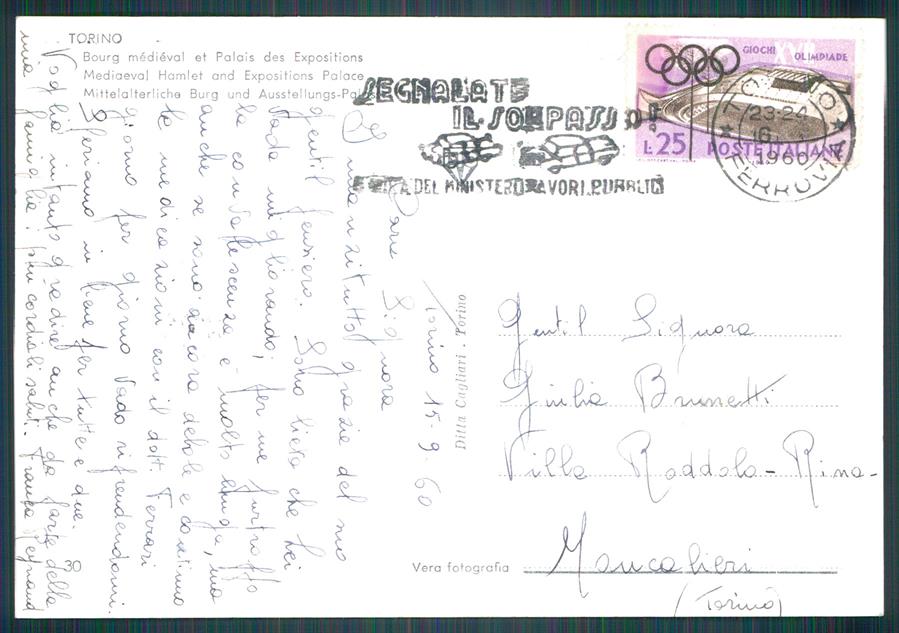 TORINO
Bourg médiéval et Palais des Expositions
Mediaeval Hamlet and Expositions Palace
Mittelalterliche Burg und Ausstellungs-Palast
SEGNALATE
IL SORPASSO!
DEL MINISTERO LAVORI PUBBLICI
GIOCHI XVII OLIMPIADE
L.25 POSTE ITALIANE
TORINO
23-24
16
1960
FERROVIA
Torino 15-9-60
Cara Signora
Innanzitutto grazie del suo
gentil pensiero. Sono lieta che Lei
vada migliorando; per me purtroppo
la convalescenza è molto lunga, ma
anche se sono ancora debole e continuo
le medicazioni con il dott. Ferrari
giorno per giorno vado riprendendomi.
Speriamo in bene per tutte e due.
Voglia intanto gradire anche da parte della
mia famiglia i più cordiali saluti. Franca
Ditta Cagliari - Torino
Gentil Signora
Giulia Brunetti
Villa Roddolo - Rina -
Moncalieri
(Torino)
30
Vera fotografia